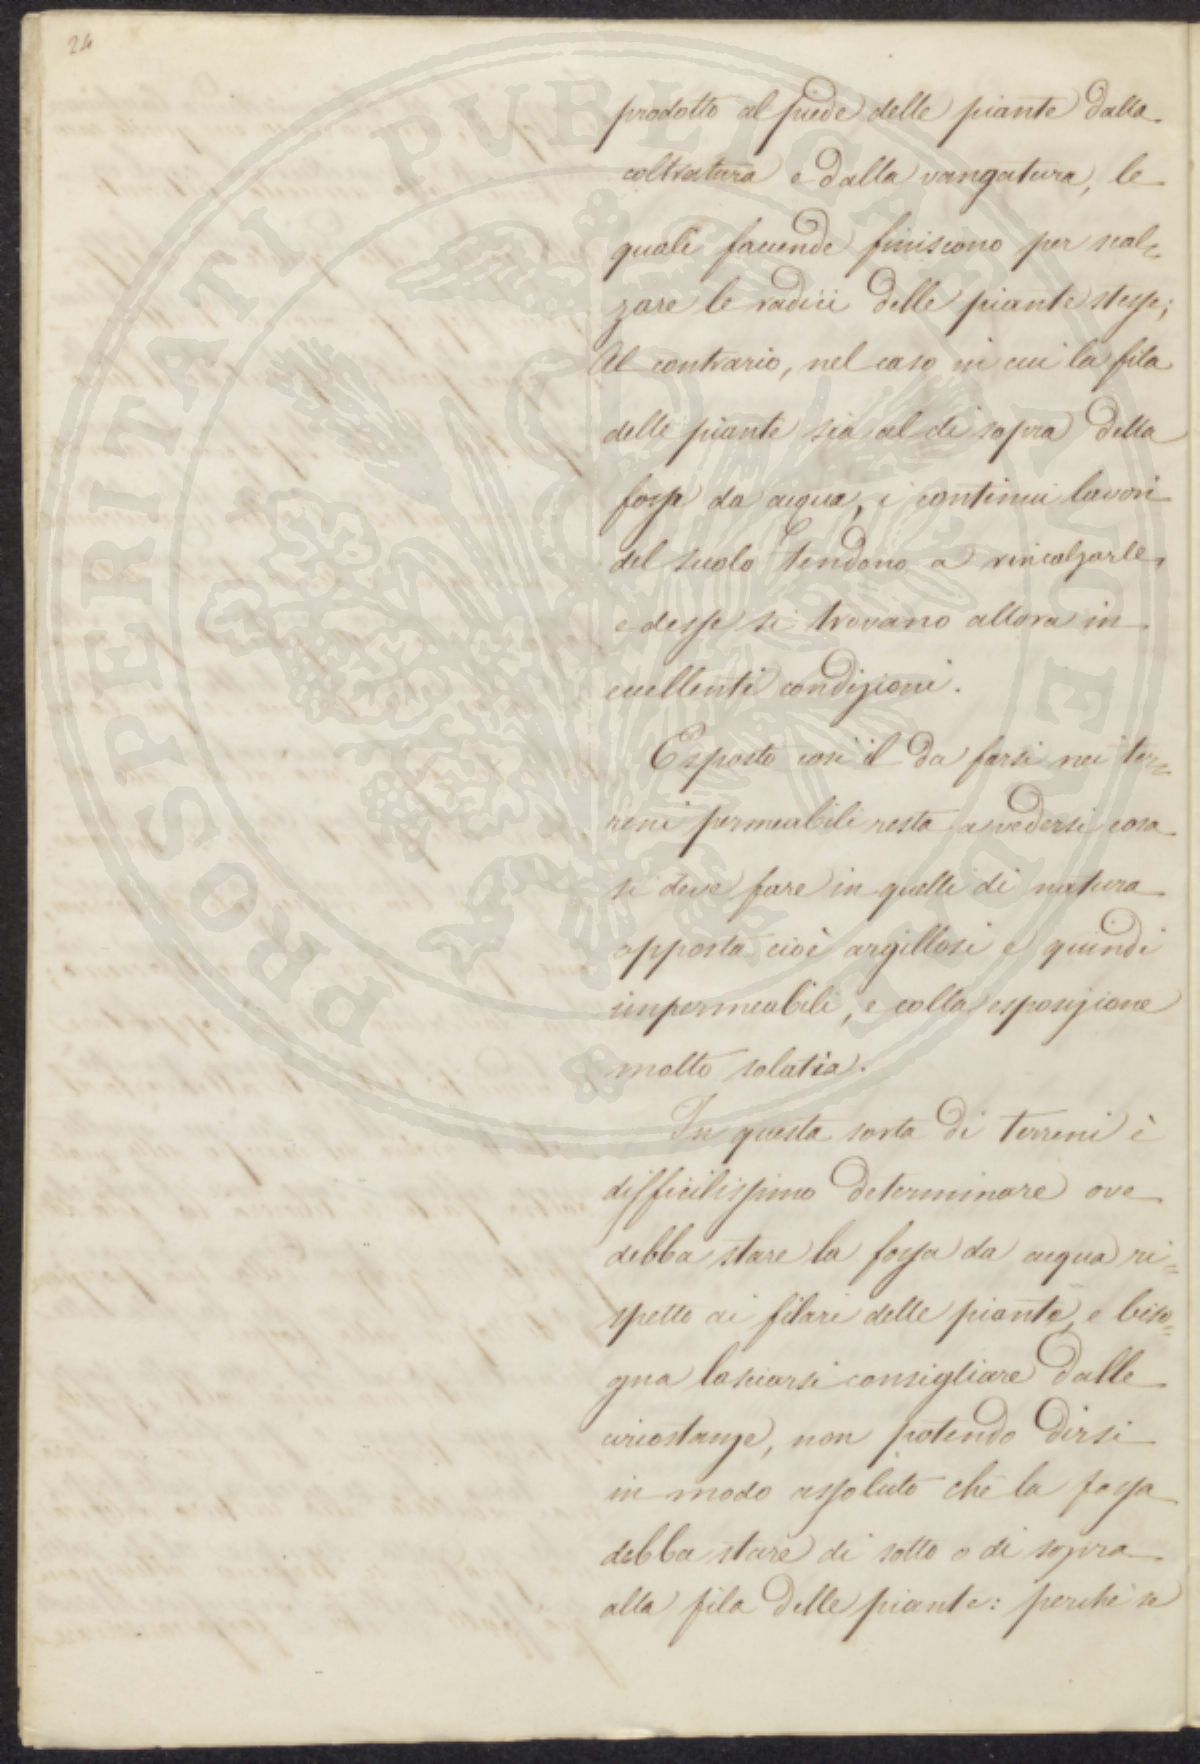 24
prodotto al piede delle piante dalla
coltratura e dalla vangatura, le
quali faccende finiscono per scal=
zare le radici delle piante stesse;
Al contrario, nel caso in cui la fila
delle piante sia al di sopra della
fossa da acqua, i continui lavori
del suolo tendono a rincalzarle,
e desse si trovano allora in
eccellenti condizioni.
Esposto così il da farsi nei ter=
reni permeabili resta a vedersi cosa
si deve fare in quelli di natura
opposta cioè argillosi e quindi
impermeabili, e colla esposizione
molto solatia.
In questa sorta di terreni è
difficilissimo determinare ove
debba stare la fossa da acqua ri=
spetto ai filari delle piante, e biso=
gna lasciarsi consigliare dalle
circostanze, non potendo dirsi
in modo assoluto che la fossa
debba stare di sotto o di sopra
alla fila delle piante: perchè se
PROSPERITATI PUBLICAE AUGENDAE